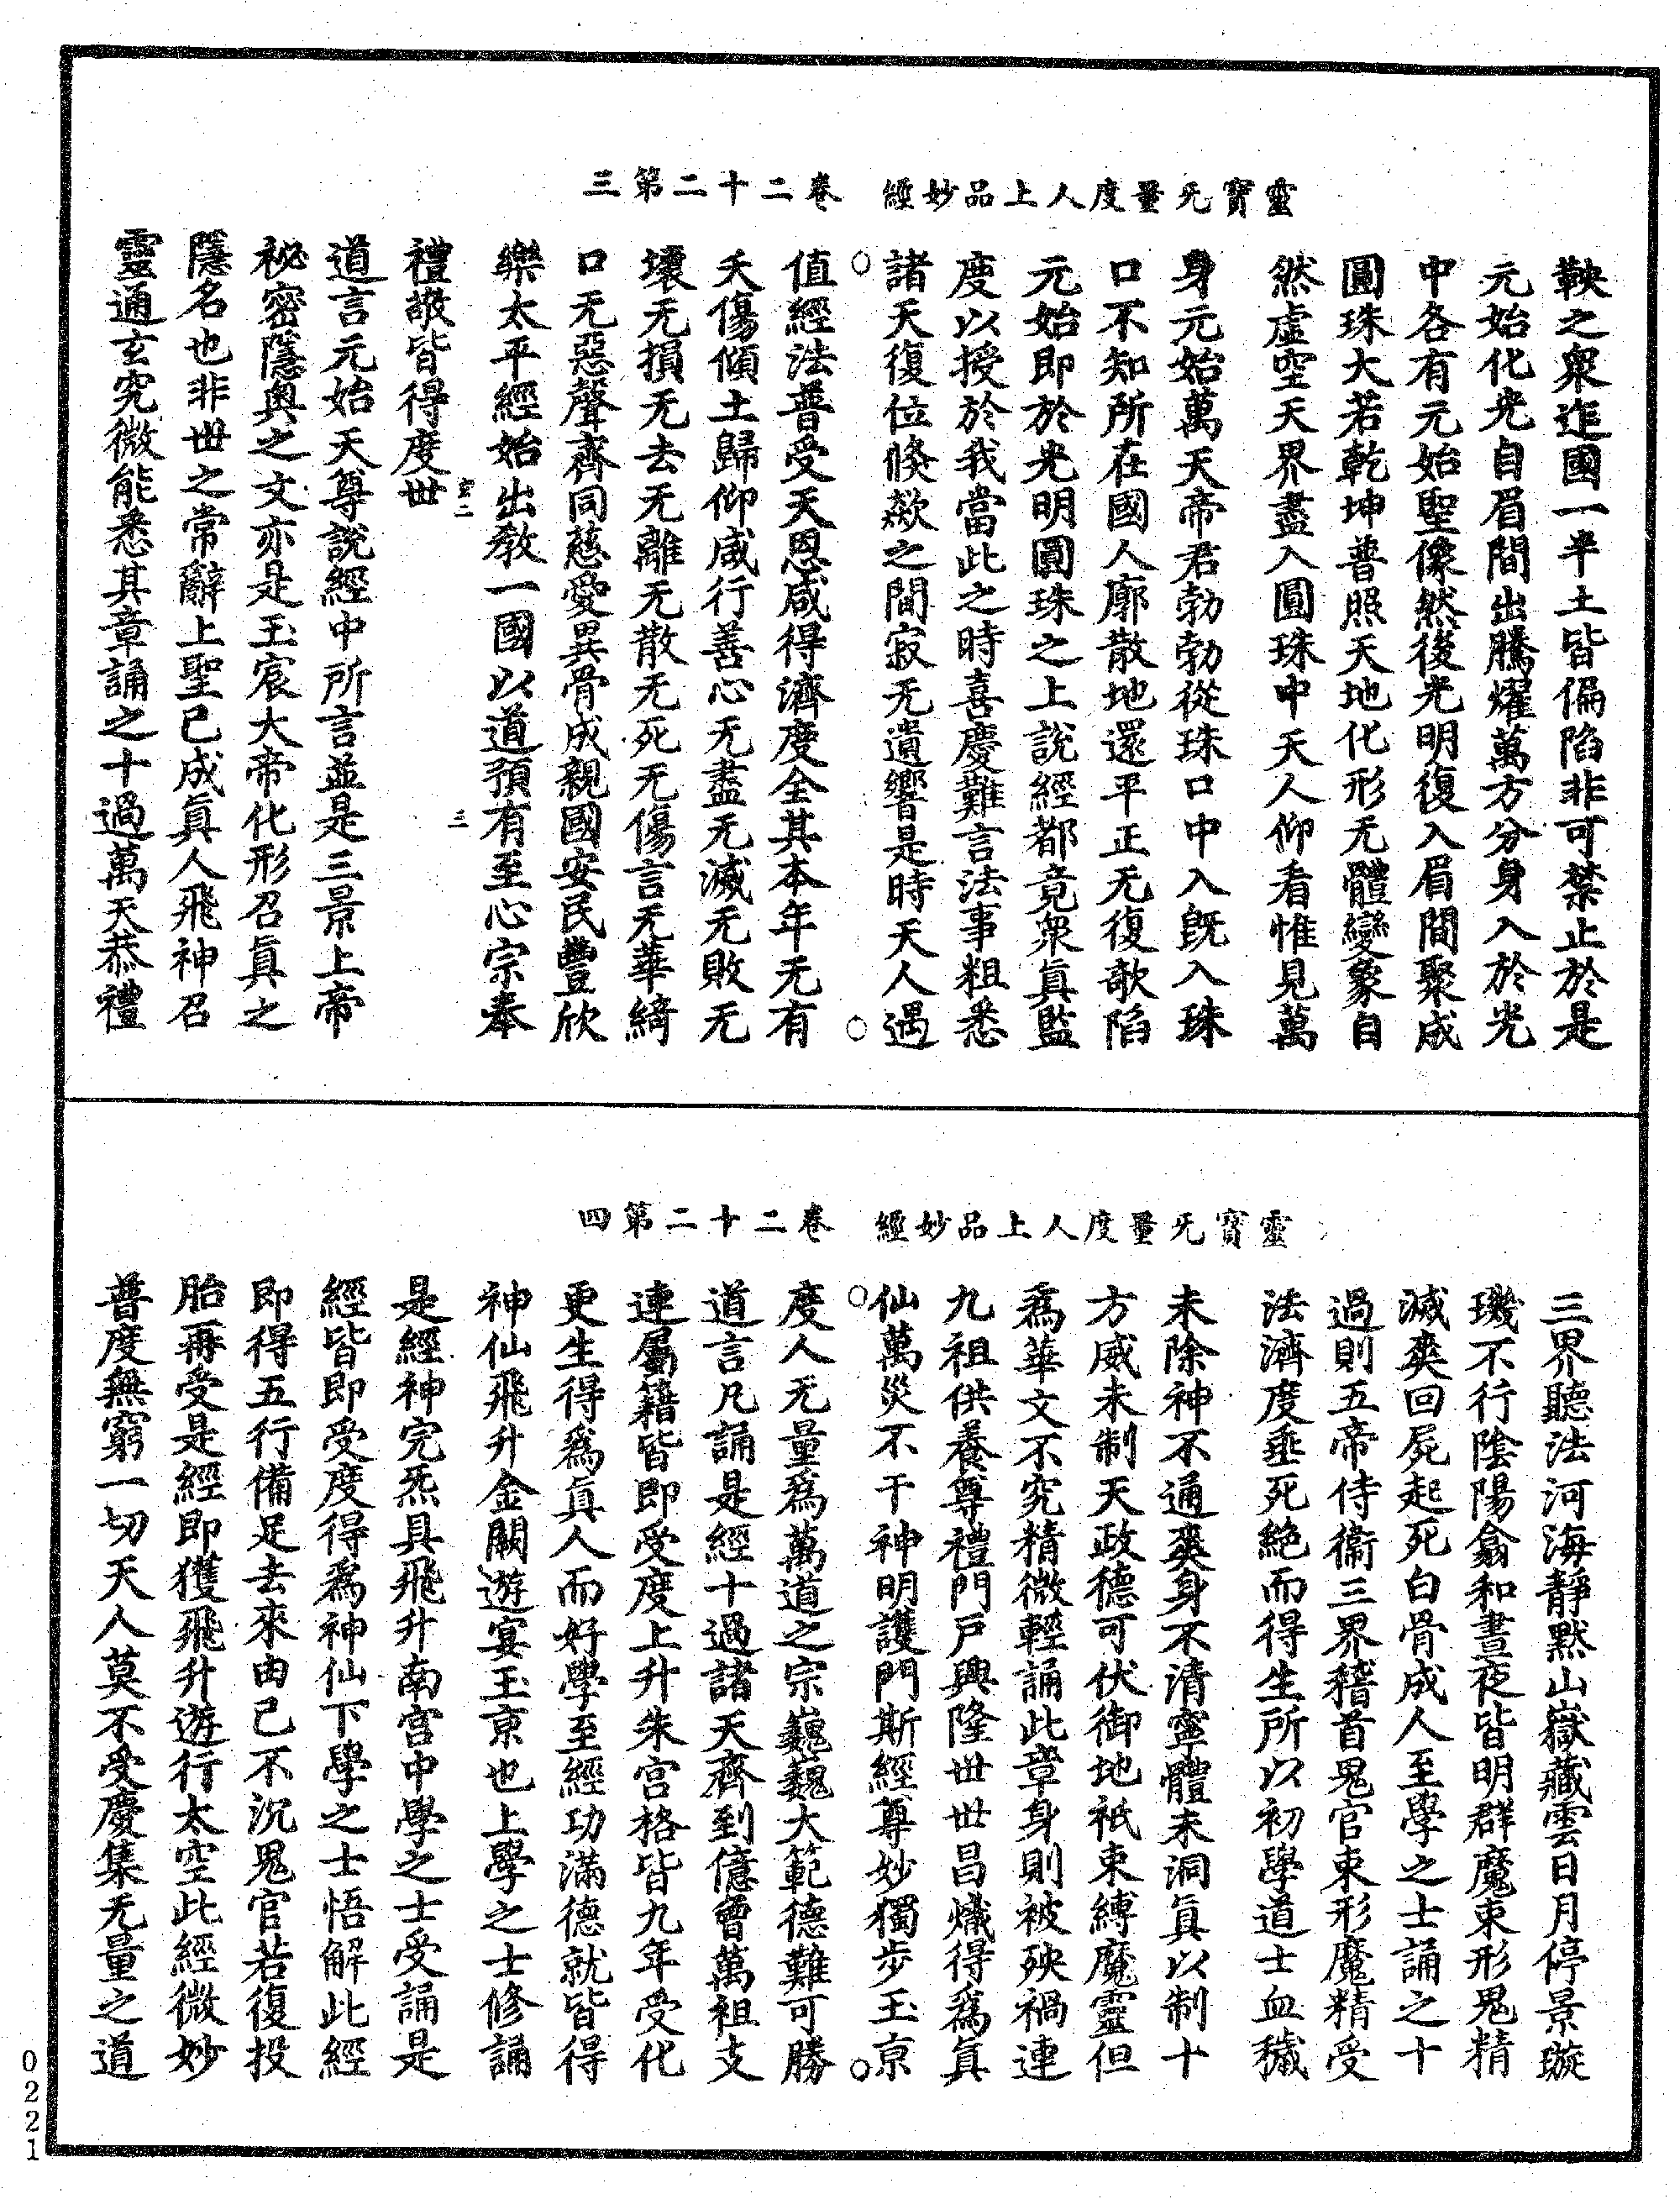 靈寶无量度人上品妙經
卷二十二第三
鞅之衆迮國一半土皆偏陷非可禁止於是
元始化光自眉間出騰耀萬方分身入於光
中各有元始聖像然後光明復入眉間聚成
圓珠大若乾坤普照天地化形无體變象自
然虛空天界盡入圓珠中天人仰看惟見萬
身元始萬天帝君勃勃從珠口中入旣入珠
口不知所在國人廓散地還平正无復欹陷
元始即於光明圓珠之上說經都竟衆眞監
度以授於我當此之時喜慶難言法事粗悉
諸天復位倏歘之間寂无遺響是時天人遇
值經法普受天恩咸得濟度全其本年无有
夭傷傾土歸仰咸行善心无盡无滅无敗无
壞无損无去无離无散无死无傷言无華綺
口无惡聲齊同慈愛異骨成親國安民豐欣
樂太平經始出教一國以道預有至心宗奉
禮敬皆得度世
三
道言元始天尊說經中所言並是三景上帝
祕密隱奧之文亦是玉宸大帝化形召眞之
隱名也非世之常辭上聖已成眞人飛神召
靈通玄究微能悉其章誦之十過萬天恭禮
靈寶无量度人上品妙經
卷二十二第四
三界聽法河海靜默山嶽藏雲日月停景璇
璣不行陰陽翕和晝夜皆明群魔束形鬼精
滅爽回屍起死白骨成人至學之士誦之十
過則五帝侍衞三界稽首鬼官束形魔精受
法濟度垂死絶而得生所以初學道士血穢
未除神不通爽身不清寧體未洞眞以制十
方威未制天政德可伏御地祇束縛魔靈但
爲華文不究精微輕誦此章身則被殃禍連
九祖供養尊禮門戶興隆世世昌熾得爲眞
仙萬災不干神明護門斯經尊妙獨步玉京
度人无量爲萬道之宗巍巍大範德難可勝
道言凡誦是經十過諸天齊到億曾萬祖支
連屬籍皆即受度上升朱宮格皆九年受化
更生得爲眞人而好學至經功滿德就皆得
神仙飛升金闕遊宴玉京也上學之士修誦
是經神完炁具飛升南宮中學之士受誦是
經皆即受度得爲神仙下學之士悟解此經
即得五行備足去來由己不沉鬼官若復投
胎再受是經即獲飛升遊行太空此經微妙
普度無窮一切天人莫不受慶集无量之道
0221